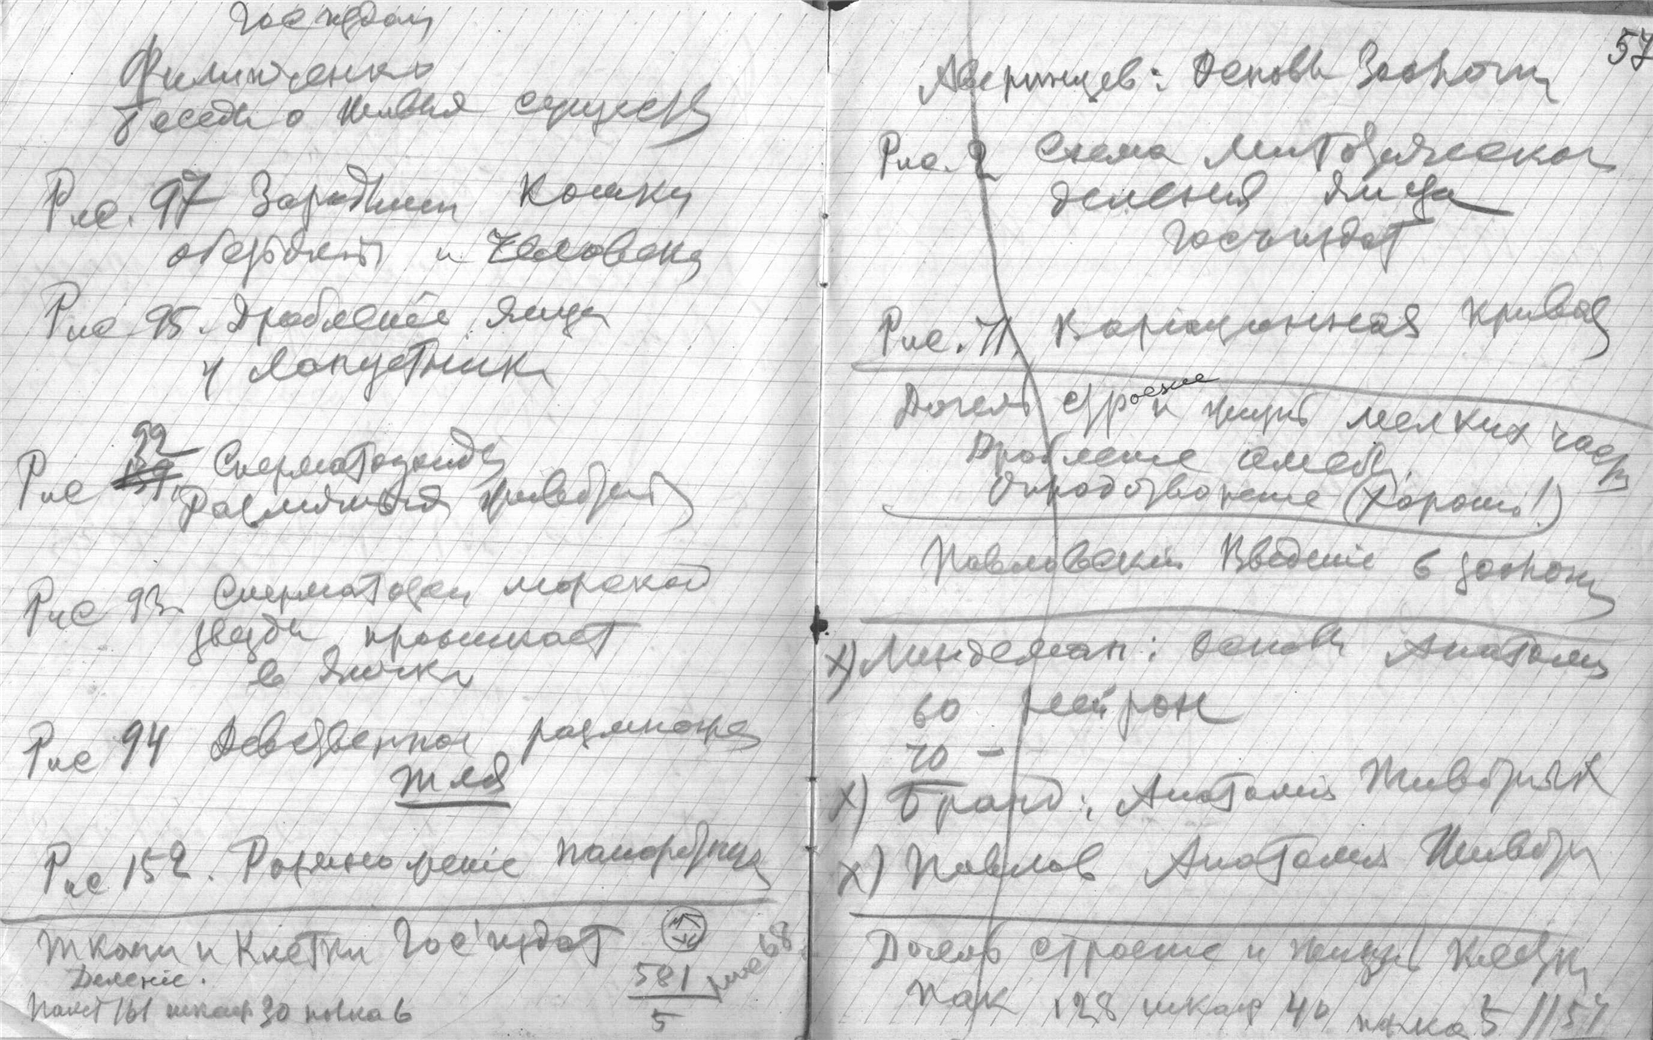 Госиздат
Филипченко
Беседы о живых существ
Рис. 97 Зародыши Кошки
обезьяны и Человека
Рис. 95. Дробление яйца
у Ланцетника
Рис 92 Сперматозоиды
различных животных
Рис 93. Сперматозоид морской
звезды проникает
в яичко
Рис 94 Девственное размноже
тля
Рис 152. Размножение папоротника
Ткани и Клетки Гос'издат
Деление.
Пакет 161 шкаф 30 полка 6
581
5
рис 68
57
Аверинцев: Основы Зоологии
Рис. 2 Схема Митотического
деления яйца
Госъиздат
Рис. 71. Вариационная кривая
Догель строение и жизнь мелких част
Дробление амебы.
Оплодотворение (хорошо!)
Павловский Введение в зоологи
х) Линдеман: Основы Анатомии
60 нейрон
70 –
х) Бранд: Анатомия Животных
х) Павлов Анатомия Животн
Догель строение и жизнь клетки
пак 128 шкаф 40 полка 5 // 57